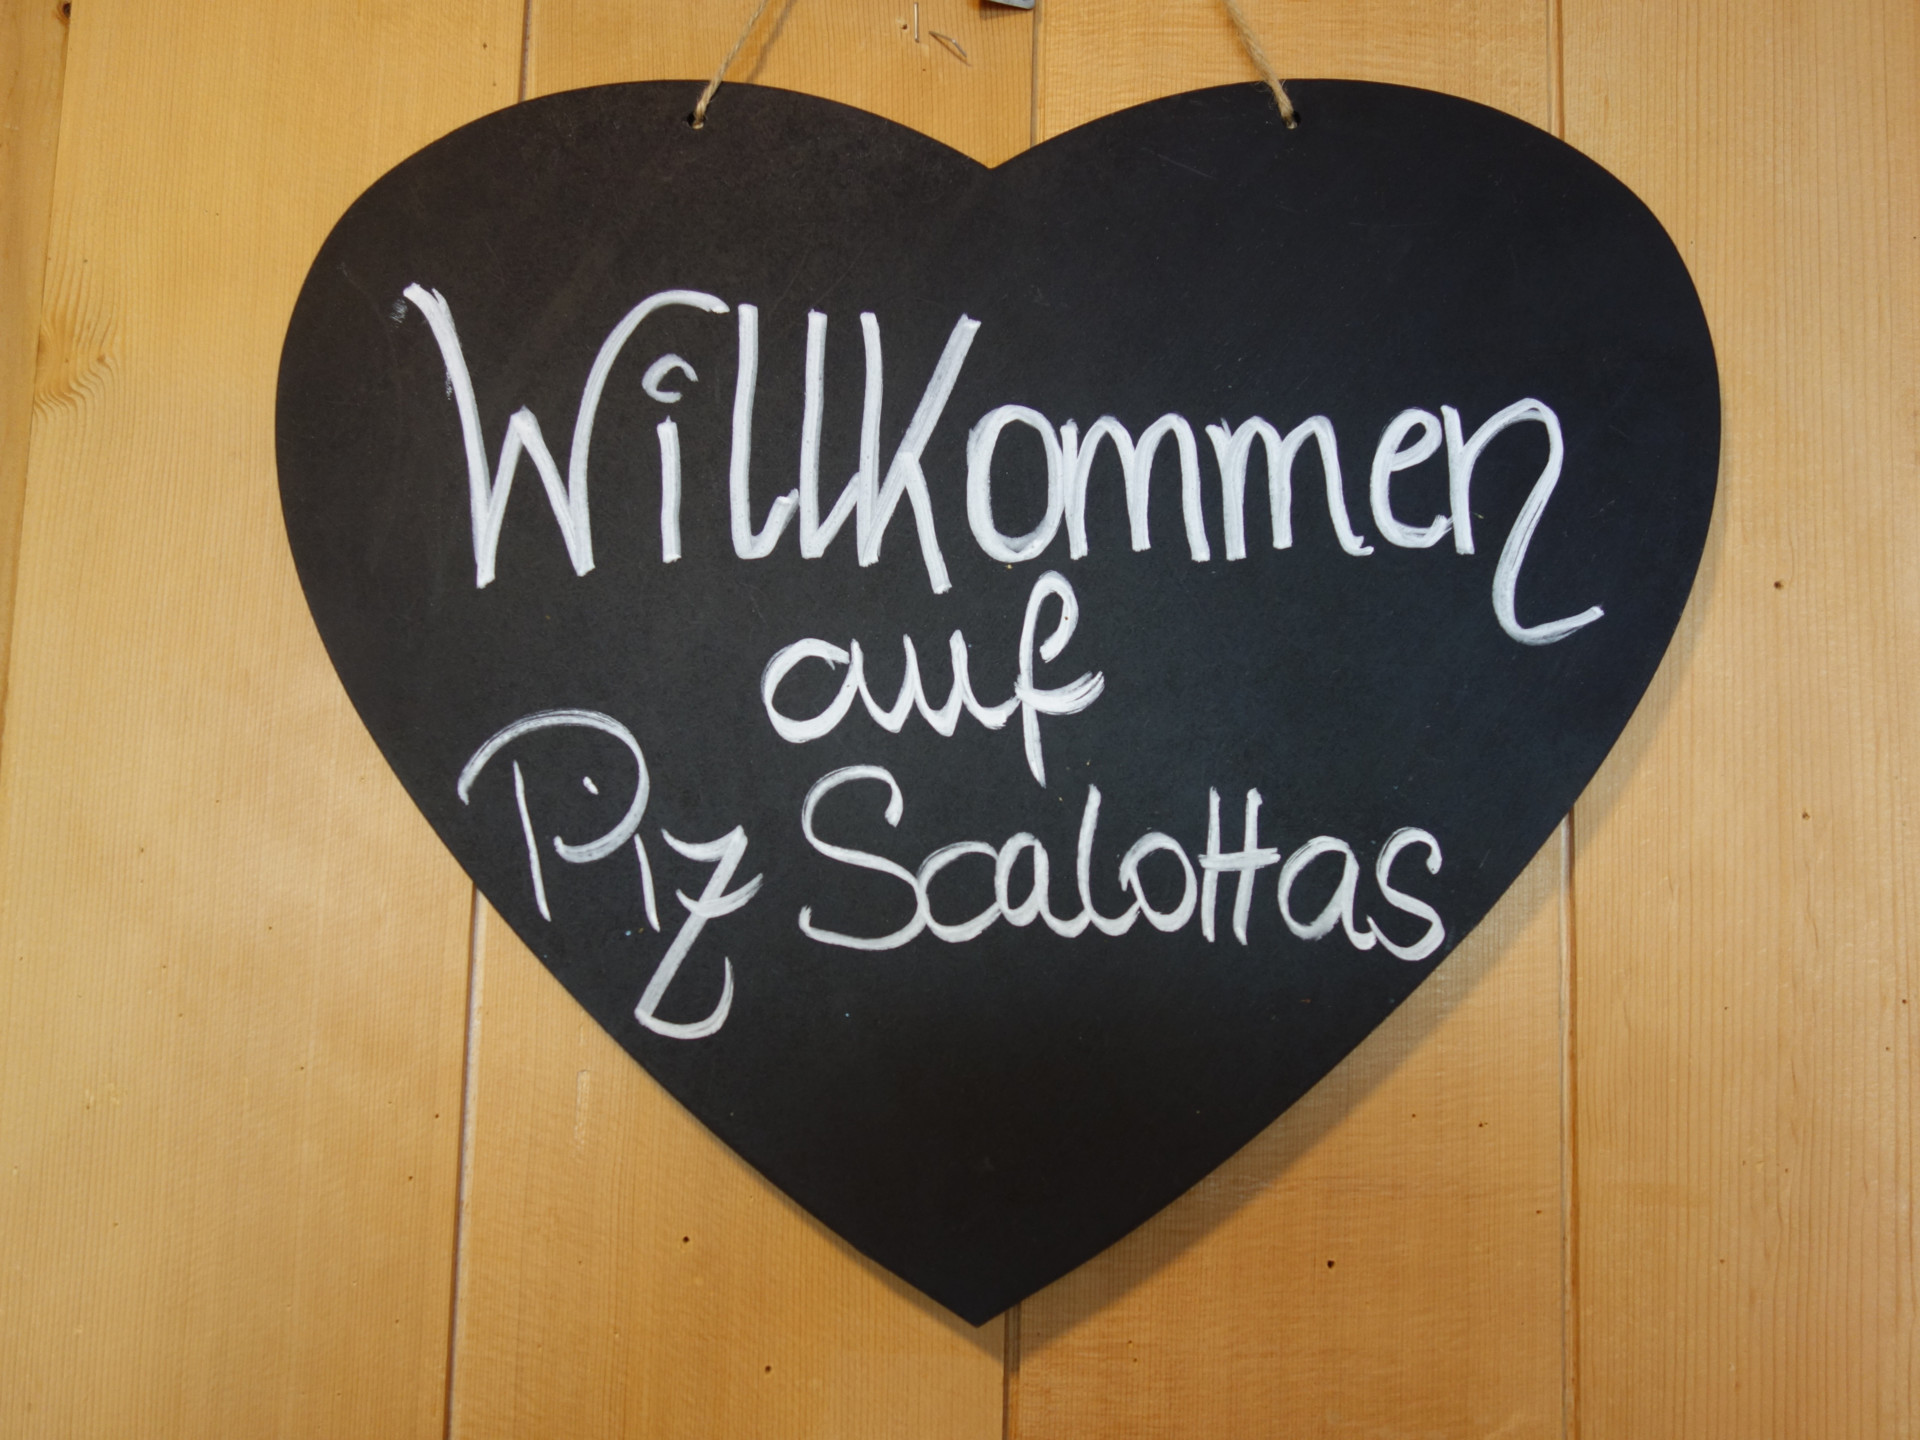 Willkommen
auf
Piz Scalottas